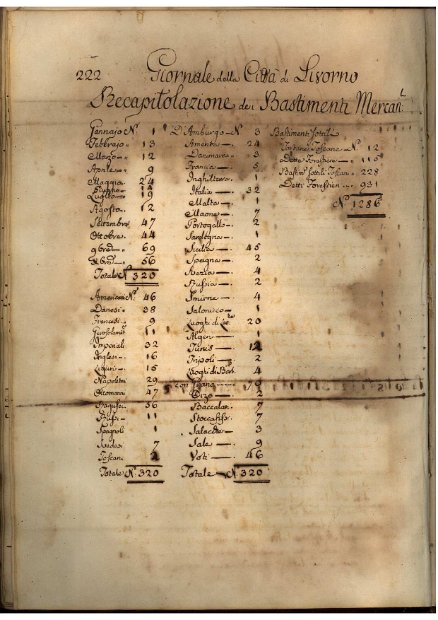 222 Giornale della Città di Livorno
Recapitolazione dei Bastimenti Mercan
Gennajo N. 1
Febbrajo 13
Marzo 12
Aprile 9
Maggio 24
Luglio 19
Agosto 12
Settembre 47
Ottobre 44
9bre 69
Xbre 56
Totale N. 320
Americani N. 46
Danesi 38
Francesi 9
11
Imperiali 32
Inglesi 16
Liguri 15
Napoletani 29
Ottomani 47
36
Russi 11
Spagnoli 1
Svedesi 7
Toscani
Totale N. 320
D'Amburgo N. 3
America 24
Danimarca 3
Francia 5
Inghilterra 1
Italia 32
Malta 1
Maone 7
Portogallo 2
Sardegna 1
Sicilia 45
Spagna 2
Svezia 4
Russia 2
Smirne 4
Salonicco 1
Luoghi di 20
Algeri 1
Tunis 12
Tripoli 2
Luoghi di Barb. 4
con Grano
2
Baccalà 7
Stoccafiss 7
Salacche 3
Sale 9
Voti 46
Totale N. 320
Bastimenti Sottili
Tartane Toscane N. 12
Dette Forestiere 115
Bastim. Sottili Toscani 228
Detti Forestieri 931
N. 1286